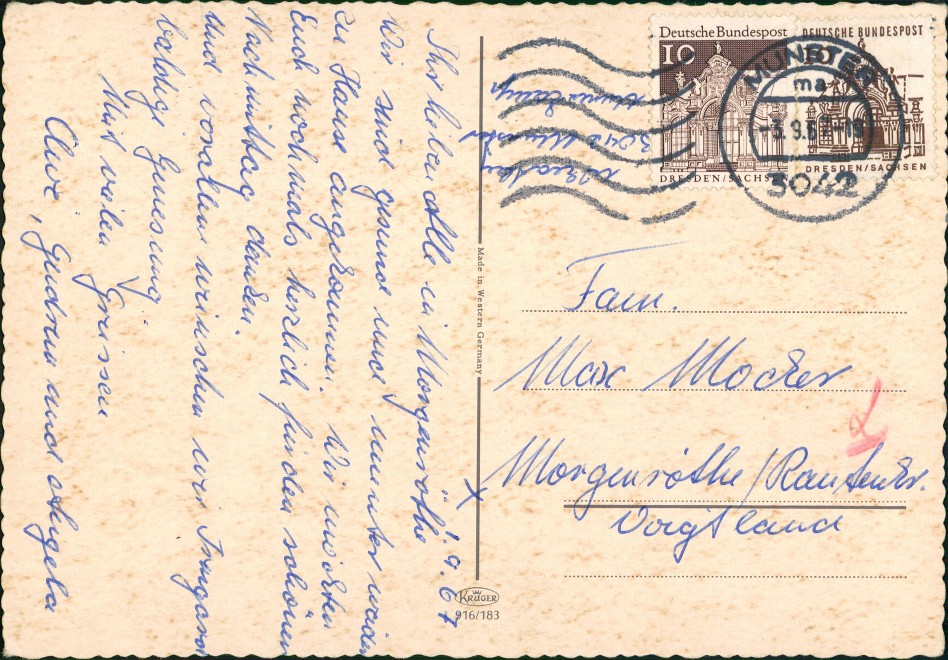 1.9.67
Ihr lieben Alle in Morgenröthe
Wir sind gesund und munter wieder
zu Hause angekommen. Wir möchten
Euch nochmals herzlich für den schönen
Nachmittag danken.
Und vor allem wünschen wir Irmgard
baldige Genesung
Mit vielen Grüssen
Uwe, Gudrun und Angela
3042 Munster
Deutsche Bundespost
10
DRESDEN/SACHSEN
DEUTSCHE BUNDESPOST
DRESDEN/SACHSEN
MUNSTER
ma
-3.9.6
3042
Made in Western Germany
KRÜGER
916/183
Fam.
Max Mocker
Morgenröthe/Rautenkr.
Voigtland
X